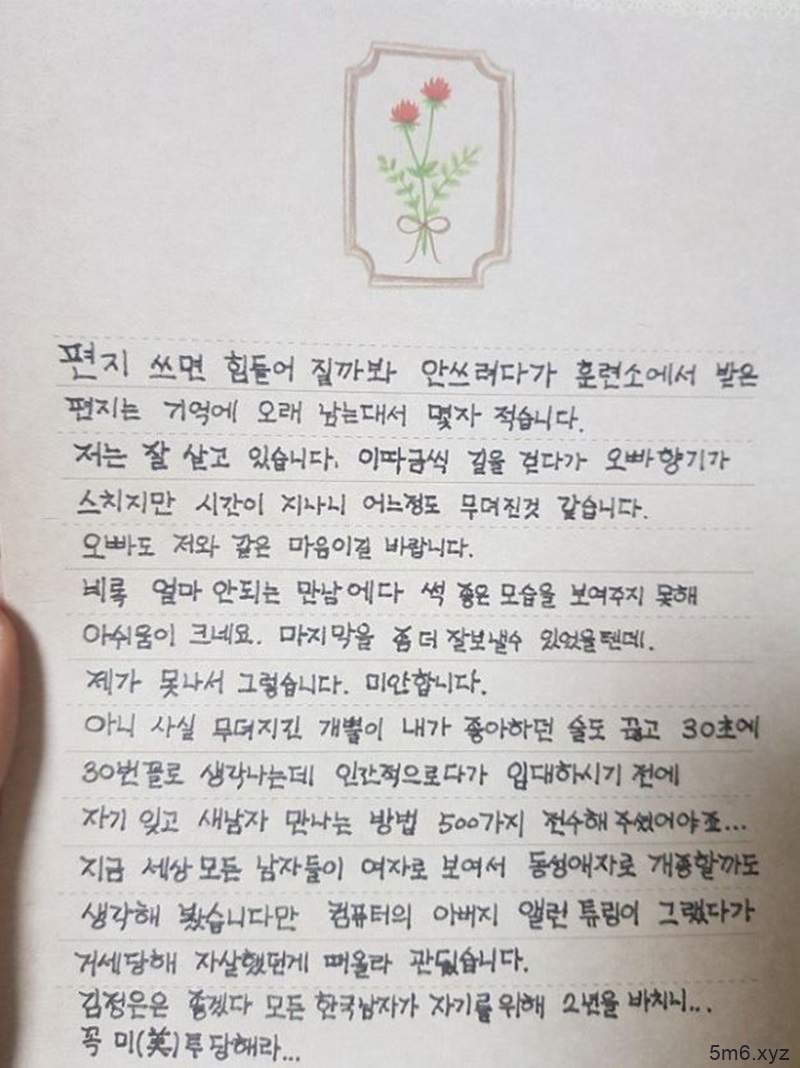 편지 쓰면 힘들어 질까봐 안쓰려다가 훈련소에서 받은
편지는 기억에 오래 남는대서 몇자 적습니다.
저는 잘 살고 있습니다. 이따금씩 길을 걷다가 오빠향기가
스치지만 시간이 지나니 어느정도 무뎌진것 같습니다.
오빠도 저와 같은 마음이길 바랍니다.
비록 얼마 안되는 만남에다 썩 좋은 모습을 보여주지 못해
아쉬움이 크네요. 마지막을 좀 더 잘보낼수 있었을텐데.
제가 못나서 그렇습니다. 미안합니다.
아니 사실 무뎌지긴 개뿔이 내가 좋아하던 술도 끊고 30초에
30번꼴로 생각나는데 인간적으로다가 입대하시기 전에
자기 잊고 새남자 만나는 방법 500가지 전수해 주셨어야죠...
지금 세상 모든 남자들이 여자로 보여서 동성애자로 개종할까도
생각해 봤습니다만 컴퓨터의 아버지 앨런 튜링이 그랬다가
거세당해 자살했던게 떠올라 관뒀습니다.
김정은은 좋겠다 모든 한국남자가 자기를 위해 2년을 바치니...
꼭 미(美)투 당해라...
5m6.xyz